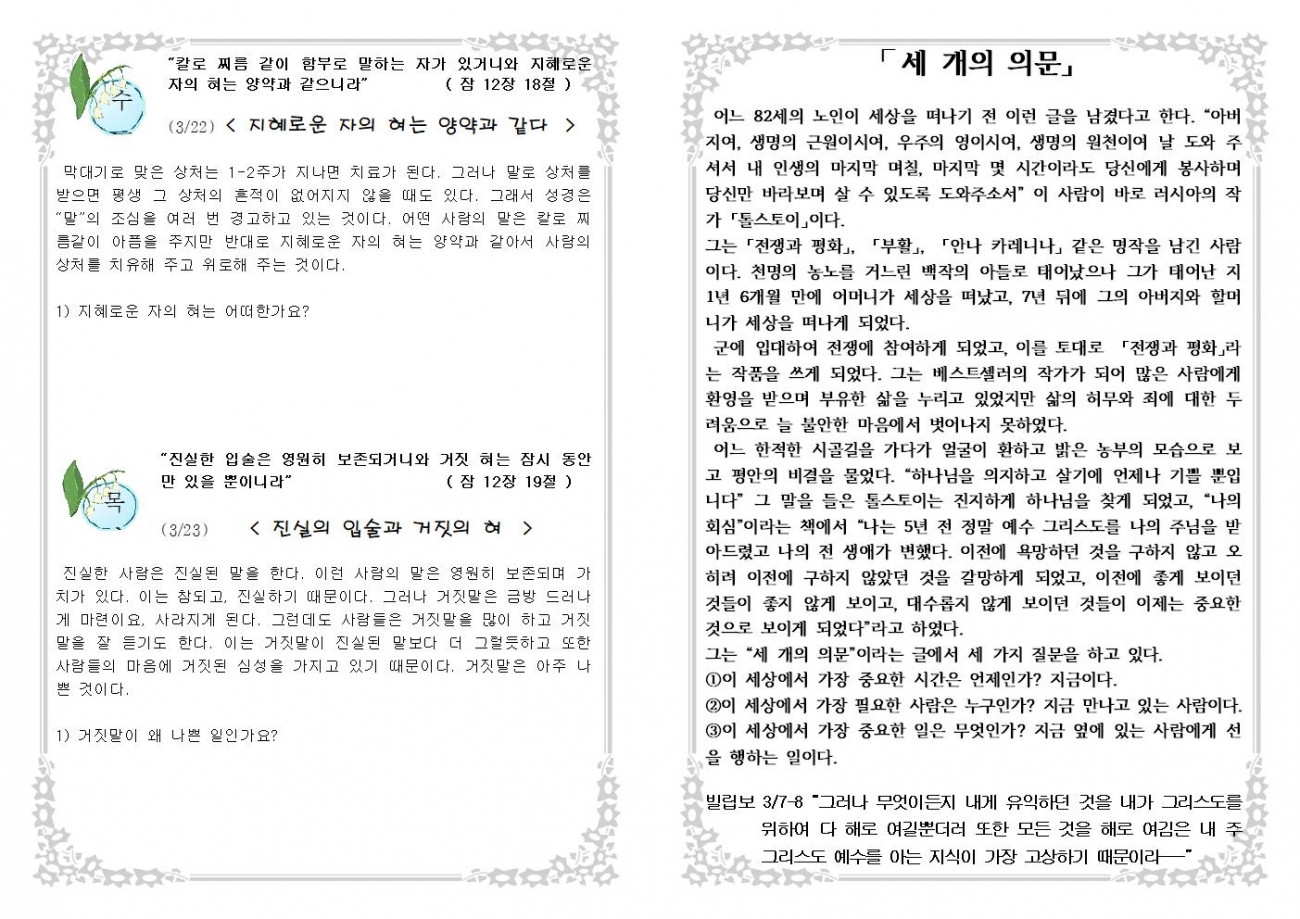 “칼로 찌름 같이 함부로 말하는 자가 있거니와 지혜로운
자의 혀는 양약과 같으니라” ( 잠 12장 18절 )
수
(3/22) < 지혜로운 자의 혀는 양약과 같다 >
막대기로 맞은 상처는 1-2주가 지나면 치료가 된다. 그러나 말로 상처를
받으면 평생 그 상처의 흔적이 없어지지 않을 때도 있다. 그래서 성경은
“말”의 조심을 여러 번 경고하고 있는 것이다. 어떤 사람의 말은 칼로 찌
름같이 아픔을 주지만 반대로 지혜로운 자의 혀는 양약과 같아서 사람의
상처를 치유해 주고 위로해 주는 것이다.
1) 지혜로운 자의 혀는 어떠한가요?
“진실한 입술은 영원히 보존되거니와 거짓 혀는 잠시 동안
만 있을 뿐이니라” ( 잠 12장 19절 )
목
(3/23) < 진실의 입술과 거짓의 혀 >
진실한 사람은 진실된 말을 한다. 이런 사람의 말은 영원히 보존되며 가
치가 있다. 이는 참되고, 진실하기 때문이다. 그러나 거짓말은 금방 드러나
게 마련이요, 사라지게 된다. 그런데도 사람들은 거짓말을 많이 하고 거짓
말을 잘 듣기도 한다. 이는 거짓말이 진실된 말보다 더 그럴듯하고 또한
사람들의 마음에 거짓된 심성을 가지고 있기 때문이다. 거짓말은 아주 나
쁜 것이다.
1) 거짓말이 왜 나쁜 일인가요?
「 세 개의 의문」
어느 82세의 노인이 세상을 떠나기 전 이런 글을 남겼다고 한다. “아버
지여, 생명의 근원이시여, 우주의 영이시여, 생명의 원천이여 날 도와 주
셔서 내 인생의 마지막 며칠, 마지막 몇 시간이라도 당신에게 봉사하며
당신만 바라보며 살 수 있도록 도와주소서” 이 사람이 바로 러시아의 작
가 「톨스토이」이다.
그는 「전쟁과 평화」, 「부활」, 「안나 카레니나」 같은 명작을 남긴 사람
이다. 천명의 농노를 거느린 백작의 아들로 태어났으나 그가 태어난 지
1년 6개월 만에 어머니가 세상을 떠났고, 7년 뒤에 그의 아버지와 할머
니가 세상을 떠나게 되었다.
군에 입대하여 전쟁에 참여하게 되었고, 이를 토대로 「전쟁과 평화」라
는 작품을 쓰게 되었다. 그는 베스트셀러의 작가가 되어 많은 사람에게
환영을 받으며 부유한 삶을 누리고 있었지만 삶의 허무와 죄에 대한 두
려움으로 늘 불안한 마음에서 벗어나지 못하였다.
어느 한적한 시골길을 가다가 얼굴이 환하고 밝은 농부의 모습으로 보
고 평안의 비결을 물었다. “하나님을 의지하고 살기에 언제나 기쁠 뿐입
니다” 그 말을 들은 톨스토이는 진지하게 하나님을 찾게 되었고, “나의
회심”이라는 책에서 “나는 5년 전 정말 예수 그리스도를 나의 주님을 받
아드렸고 나의 전 생애가 변했다. 이전에 욕망하던 것을 구하지 않고 오
히려 이전에 구하지 않았던 것을 갈망하게 되었고, 이전에 좋게 보이던
것들이 좋지 않게 보이고, 대수롭지 않게 보이던 것들이 이제는 중요한
것으로 보이게 되었다”라고 하였다.
그는 “세 개의 의문”이라는 글에서 세 가지 질문을 하고 있다.
①이 세상에서 가장 중요한 시간은 언제인가? 지금이다.
②이 세상에서 가장 필요한 사람은 누구인가? 지금 만나고 있는 사람이다.
③이 세상에서 가장 중요한 일은 무엇인가? 지금 옆에 있는 사람에게 선
을 행하는 일이다.
빌립보 3/7-8 “그러나 무엇이든지 내게 유익하던 것을 내가 그리스도를
위하여 다 해로 여길뿐더러 또한 모든 것을 해로 여김은 내 주
그리스도 예수를 아는 지식이 가장 고상하기 때문이라──”